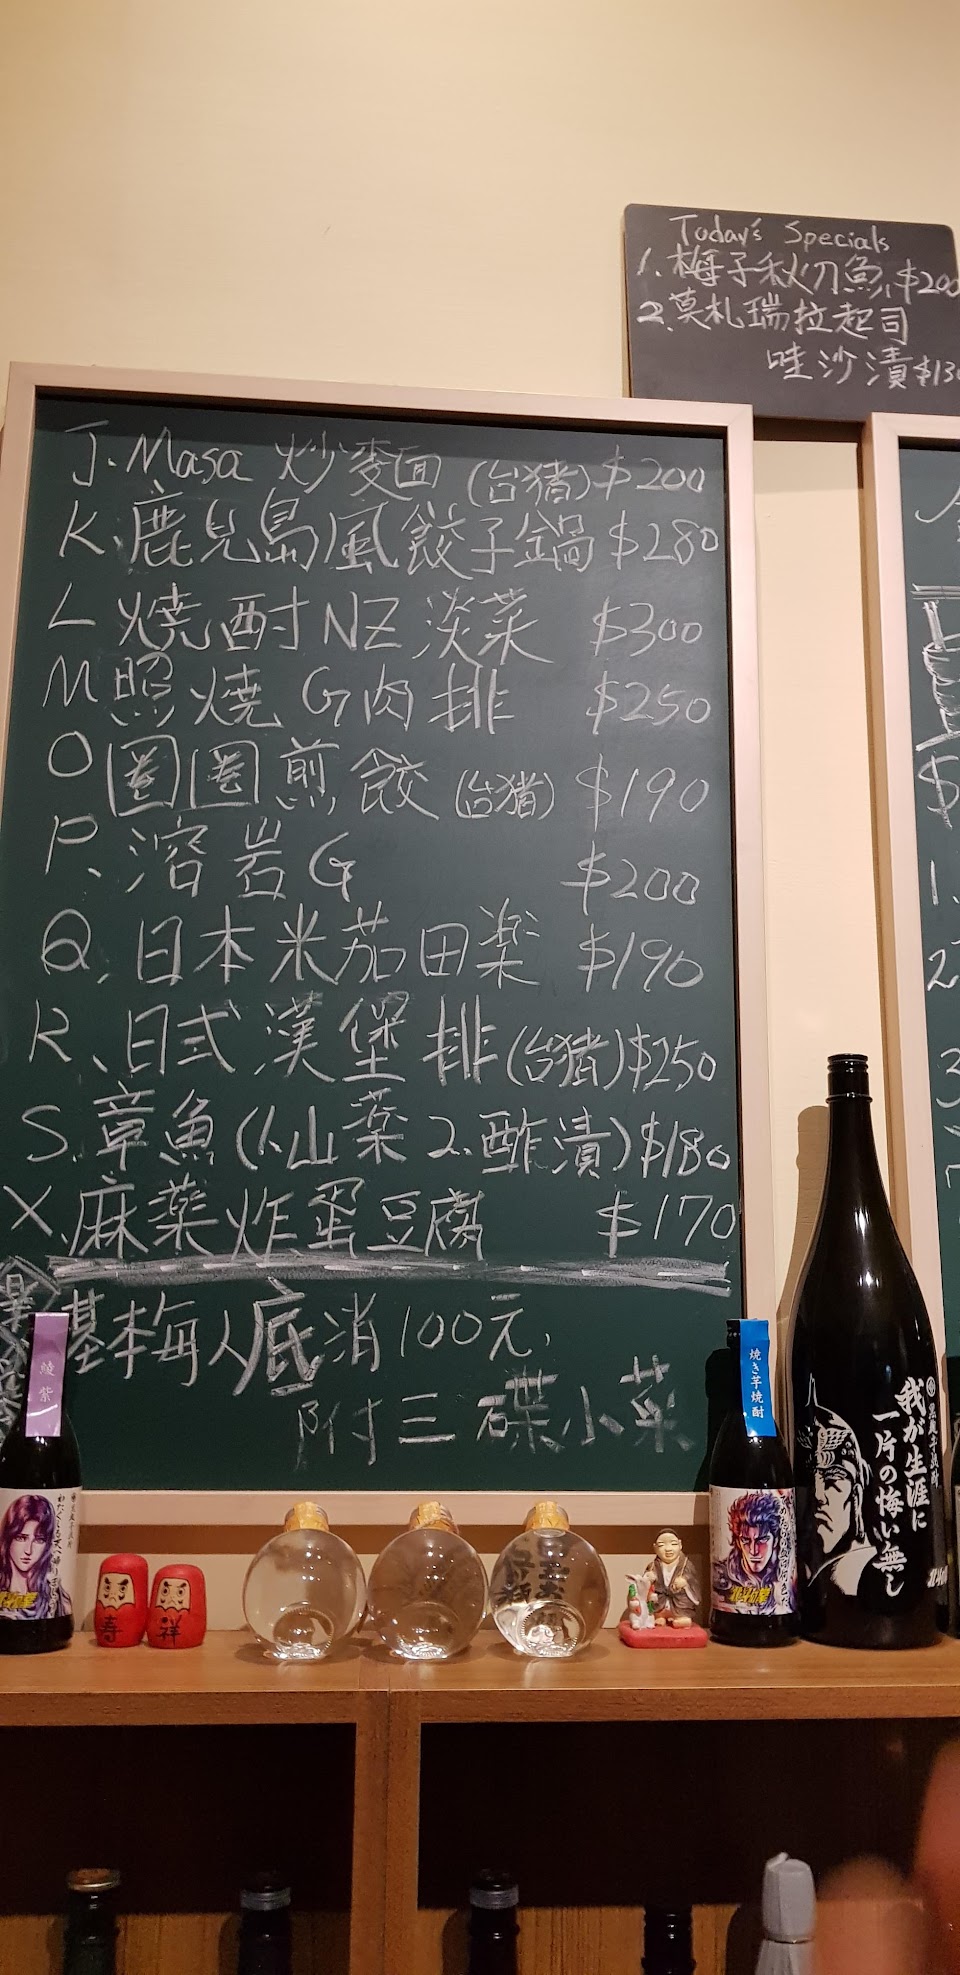 Today's Specials
1.梅子秋刀魚 $200
2.莫札瑞拉起司
哇沙漬 $130
J.Masa 炒麥面 (台豬) $200
K.鹿児島風餃子鍋 $280
L 燒酎 NZ 淡菜 $300
M 照燒 G肉排 $250
O 圈圈煎餃 (台豬) $190
P.溶岩G $200
Q.日本米茄田楽 $190
R、日式漢堡排 (台豬) $250
S.章魚 (1.山薬 2.酢漬) $180
X.麻薬炸蛋豆腐 $170
基本每人底消100元,
附三碟小菜
綾紫
焼き芋焼酎
我が生涯に
一片の悔い無し
寿
祥
1.
2
3